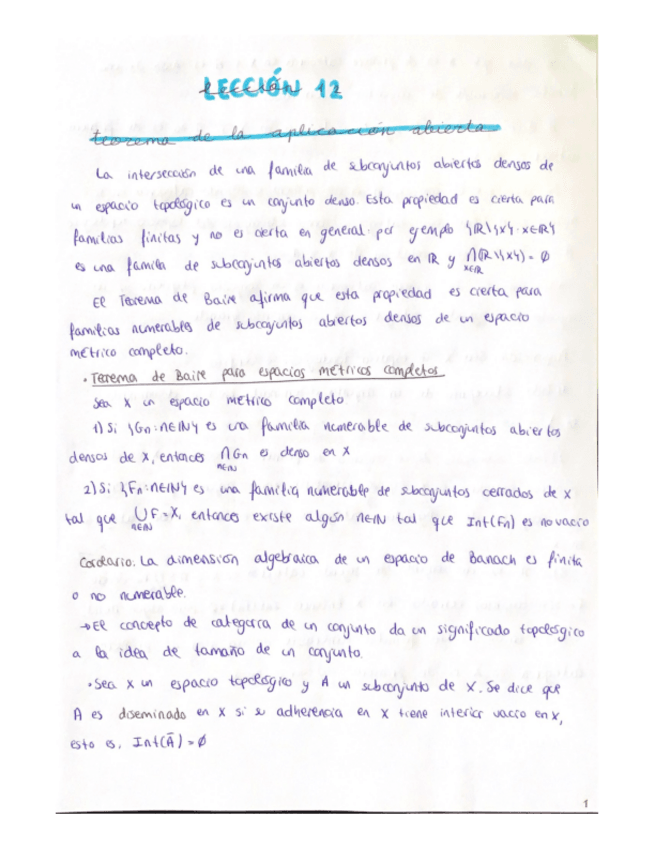 LECCIÓN 12
teorema de la aplicación abierta
La intersección de una familia de subconjuntos abiertos densos de
un espacio topológico es un conjunto denso. Esta propiedad es cierta para
familias finitas y no es cierta en general. por ejemplo {ℝ\{x}: x∈ℝ}
es una familia de subconjuntos abiertos densos en ℝ y ⋂(ℝ\{x}) = ∅
x∈ℝ
El Teorema de Baire afirma que esta propiedad es cierta para
familias numerables de subconjuntos abiertos densos de un espacio
métrico completo.
• Teorema de Baire para espacios métricos completos
Sea X un espacio métrico completo
1) Si {Gn: n∈ℕ} es una familia numerable de subconjuntos abiertos
densos de X, entonces ⋂Gn es denso en X
n∈ℕ
2) Si {Fn: n∈ℕ} es una familia numerable de subconjuntos cerrados de X
tal que ⋃F = X, entonces existe algún n∈ℕ tal que Int(Fn) es no vacío
n∈ℕ
Corolario. La dimensión algebraica de un espacio de Banach es finita
o no numerable.
→ El concepto de categoría de un conjunto da un significado topológico
a la idea de tamaño de un conjunto.
• Sea X un espacio topológico y A un subconjunto de X. Se dice que
A es diseminado en X si su adherencia en X tiene interior vacío en X,
esto es, Int(Ā) = ∅
1